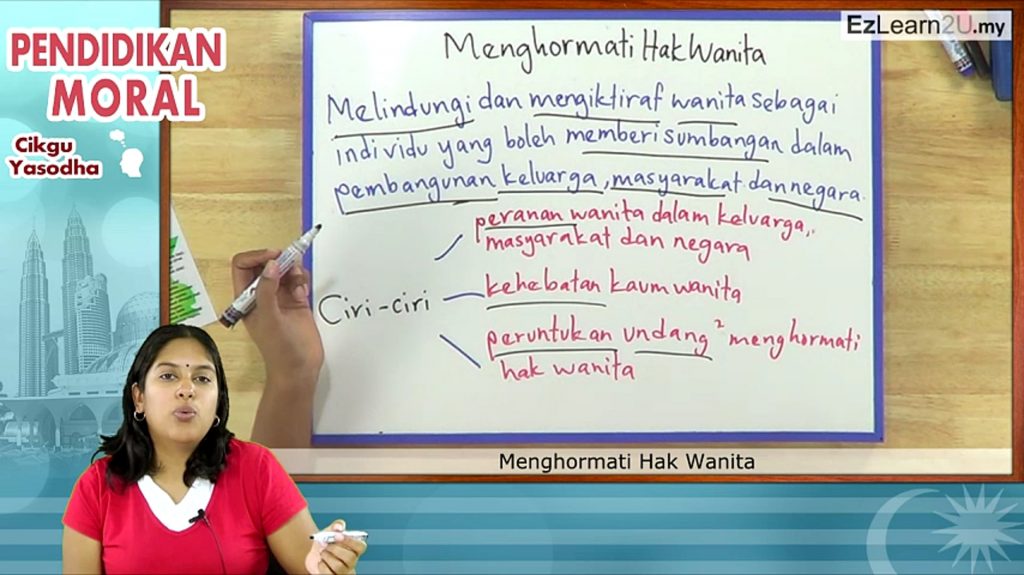 PENDIDIKAN
MORAL
Cikgu
Yasodha
EzLearn2U.my
Menghormati Hak Wanita
Melindungi dan mengiktiraf wanita sebagai
individu yang boleh memberi sumbangan dalam
pembangunan keluarga, masyarakat dan negara.
Ciri-ciri
peranan wanita dalam keluarga,
masyarakat dan negara
kehebatan kaum wanita
peruntukan undang² menghormati
hak wanita
Menghormati Hak Wanita